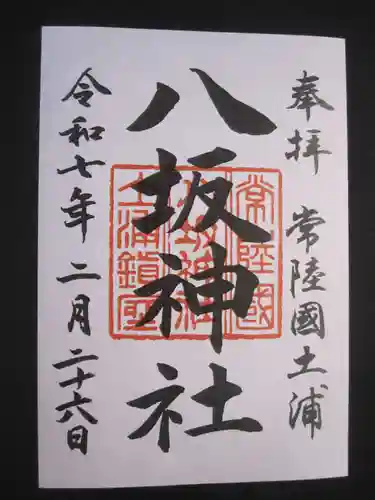 奉拝 常陸國土浦
八坂神社
令和七年 二月二十六日
常陸國
八坂神社
土浦鎮座